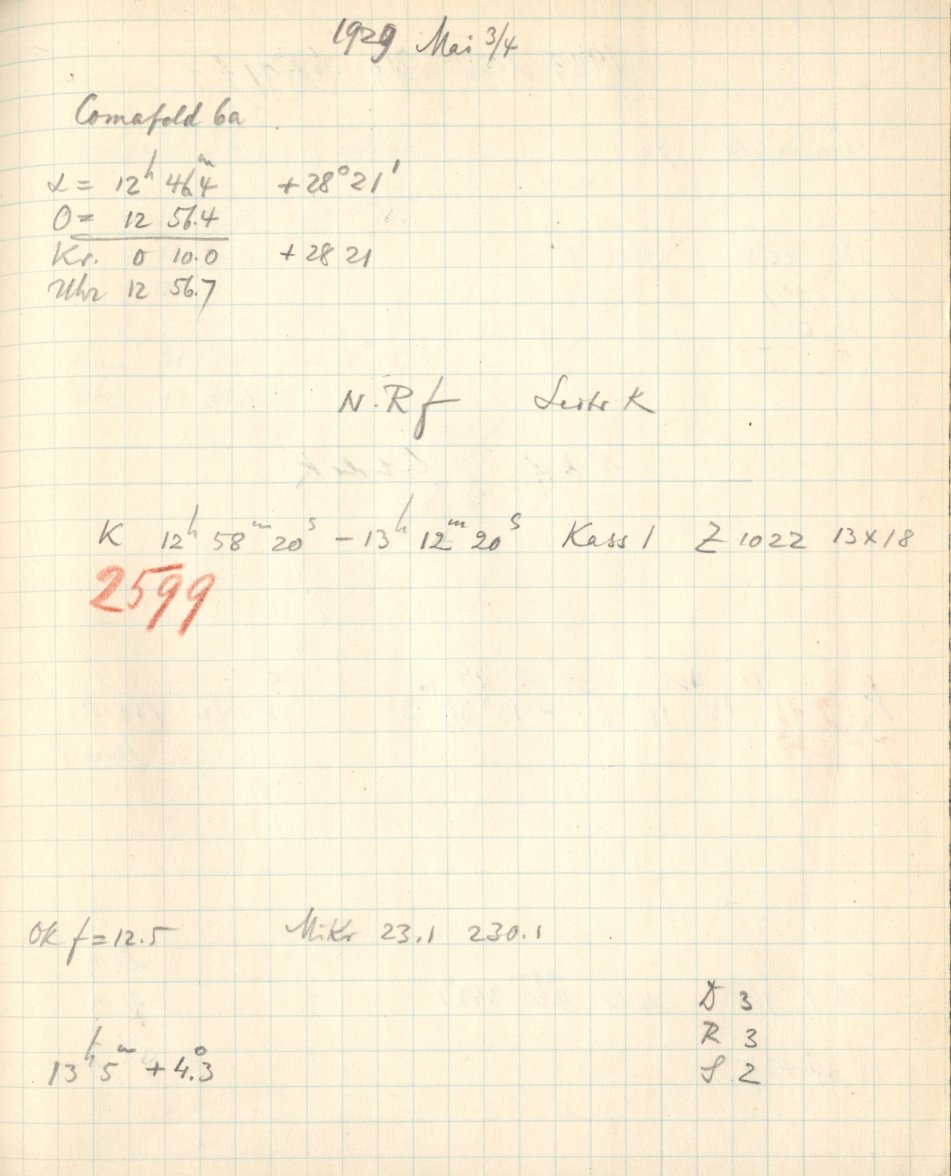 1929 Mai 3/4
Comafeld 6a
α = 12ʰ 46.4ᵐ +28° 21'
O = 12 56.4
Kr. 0 10.0 +28 21
Uhr 12 56.7
N.R f Leitr K
K 12ʰ 58ᵐ 20ˢ – 13ʰ 12ᵐ 20ˢ Kass 1 Z 1022 13×18
2599
Ok f = 12.5 Mikr 23.1 230.1
D 3
R 3
13ʰ 5ᵐ +4.3° S 2